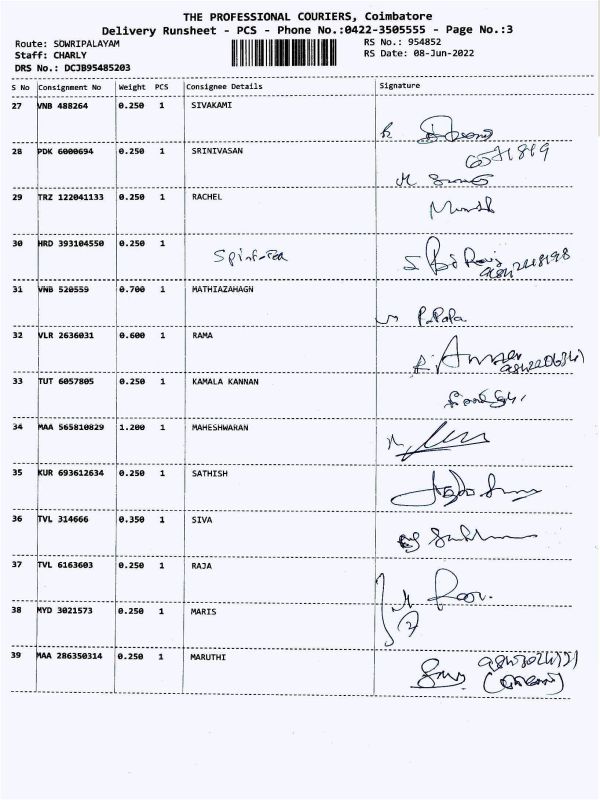 THE PROFESSIONAL COURIERS, Coimbatore
Delivery Runsheet - PCS - Phone No.:0422-3505555 - Page No.:3
Route: SOWRIPALAYAM
Staff: CHARLY
DRS No.: DCJB95485203
RS No.: 954852
RS Date: 08-Jun-2022
S No Consignment No Weight PCS Consignee Details Signature
27 VNB 488264 0.250 1 SIVAKAMI
28 PDK 6000694 0.250 1 SRINIVASAN
29 TRZ 122041133 0.250 1 RACHEL
30 HRD 393104550 0.250 1
31 VNB 520559 0.700 1 MATHIAZAHAGN
32 VLR 2636031 0.600 1 RAMA
33 TUT 6057805 0.250 1 KAMALA KANNAN
34 MAA 565810829 1.200 1 MAHESHWARAN
35 KUR 693612634 0.250 1 SATHISH
36 TVL 314666 0.350 1 SIVA
37 TVL 6163603 0.250 1 RAJA
38 MYD 3021573 0.250 1 MARIS
39 MAA 286350314 0.250 1 MARUTHI